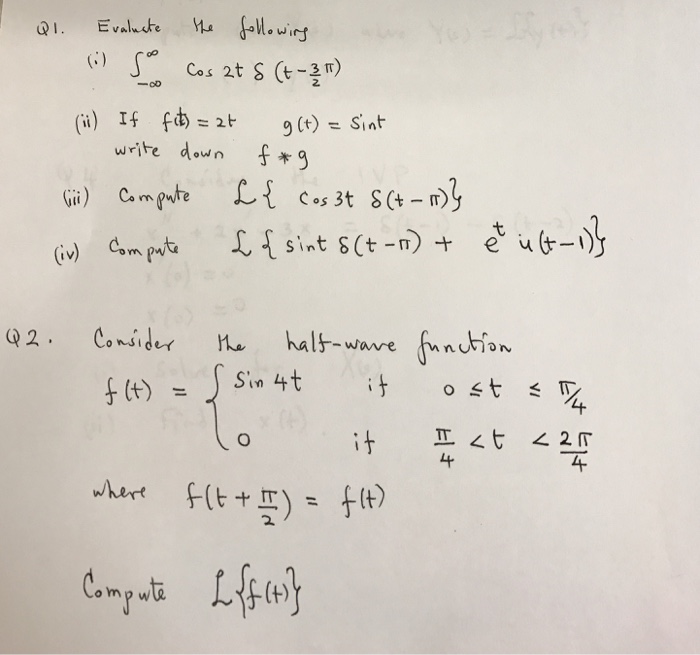 Q1. Evaluate the following
(i) ∫_{-∞}^{∞} cos 2t δ (t - 3/2 π)
(ii) If f(t) = 2t g(t) = sint
write down f * g
(iii) Compute ℒ{ cos 3t δ(t - π)}
(iv) Compute ℒ{ sint δ(t - π) + e^t u(t-1)}
Q2. Consider the half-wave function
f(t) = { sin 4t if 0 ≤ t ≤ π/4
0 if π/4 < t < 2π/4
where f(t + π/2) = f(t)
Compute ℒ{f(t)}